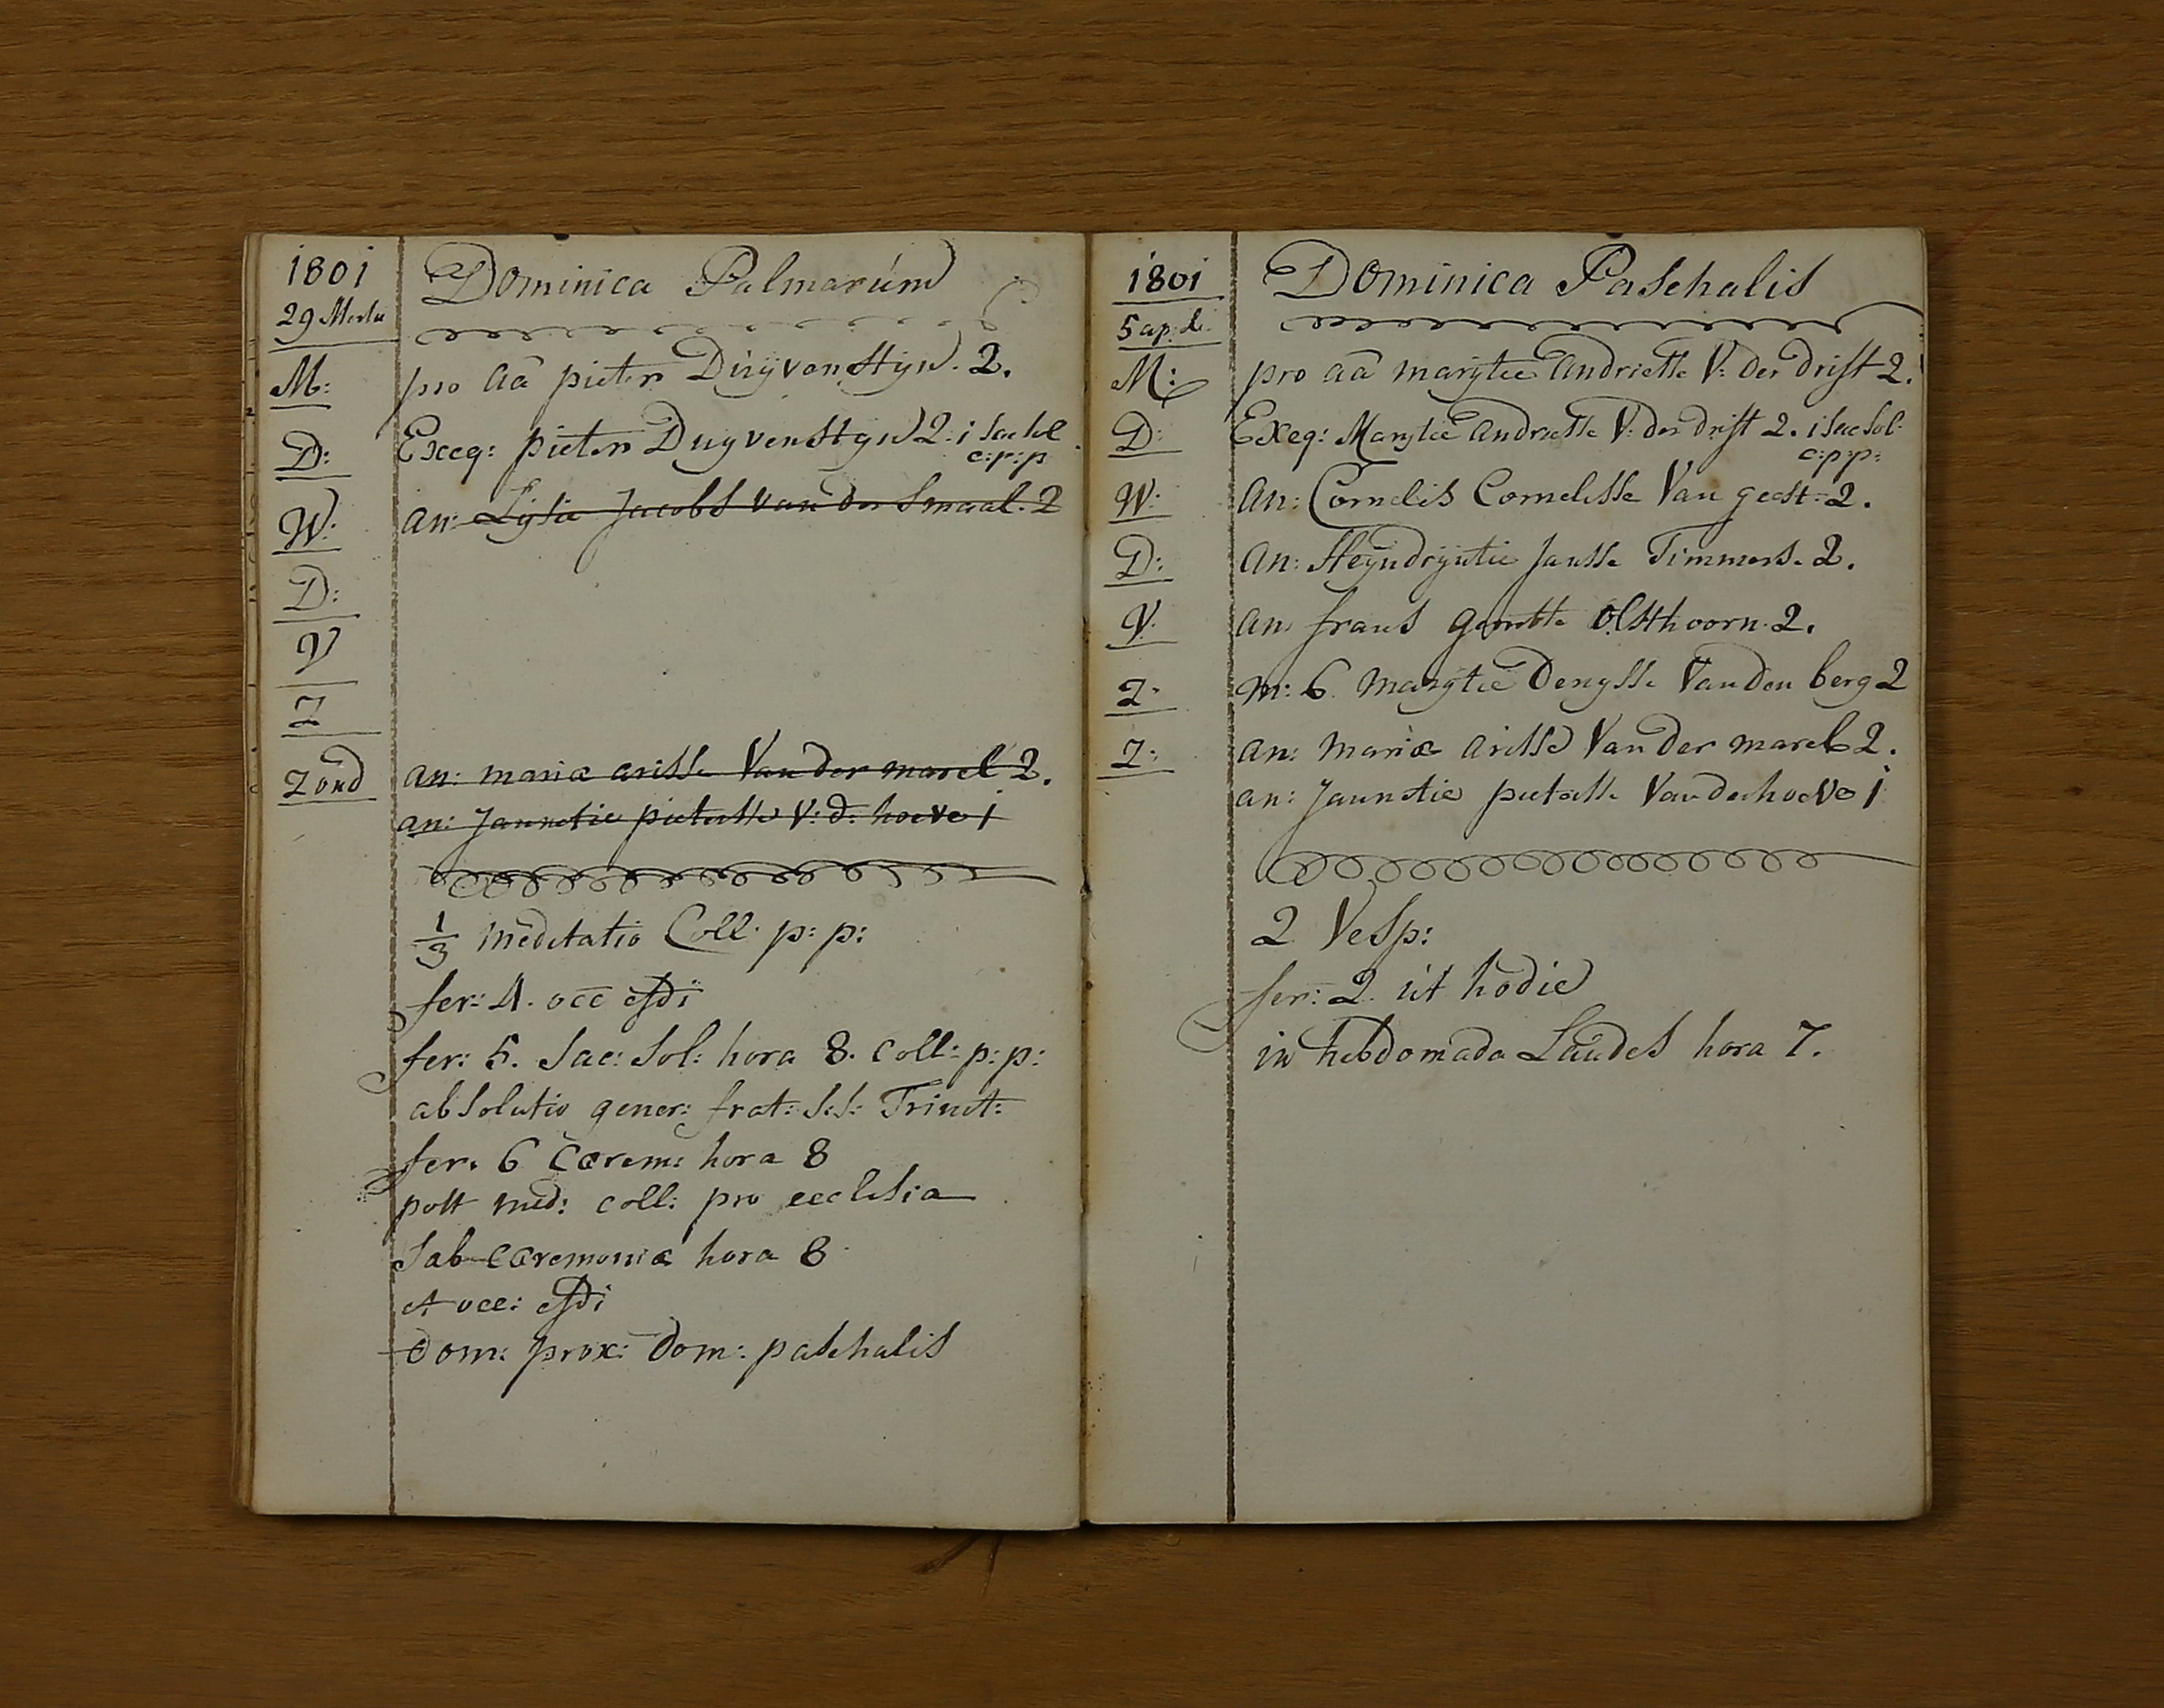 1801 Dominica Palmarúm
29 Merta
M: pro aā pieter Dúÿvenstÿn. 2.
D: Exeq: pieter Duyvenstyn 2: i Sac sol
c:p:p
W: an: Lysie Jacobs van der Smaal. 2
D:
V
Z
Zond an: mariæ arisse Van der marel 2.
an: Jannetie pieterse V: d: hoeve i
1/3 meditatio Coll: p: p:
fer: 4. occ
fer: 5. Sac: Sol: hora 8. coll: p: p:
absolutio gener: frat: S:S: Trinit:
fer: 6 Cærem: hora 8
post med: coll: pro ecclesia
Sab cæremoniæ hora 8
et occ:
Dom: prox: Dom: paschalis
1801 Dominica Paschalis
5 april
M: pro aā marÿtie andriesse V: der drift 2.
D: Exeq: Marytie andriesse V: der drift 2. i Sac Sol:
c:p:p:
W: an: Cornelis Cornelisse Van geest. 2.
D: an: Heÿndrÿntie Jansse Timmers. 2.
V: an: frans gerritse Olsthoorn. 2.
Z: m: 6. Marÿtie Denysse Van den berg 2
Z: an: mariæ arisse Van der marel 2.
an: Jannetie pieterse Van der hoeve i
2 Vesp:
fer: 2. út hodie
in hebdomada Laudes hora 7.